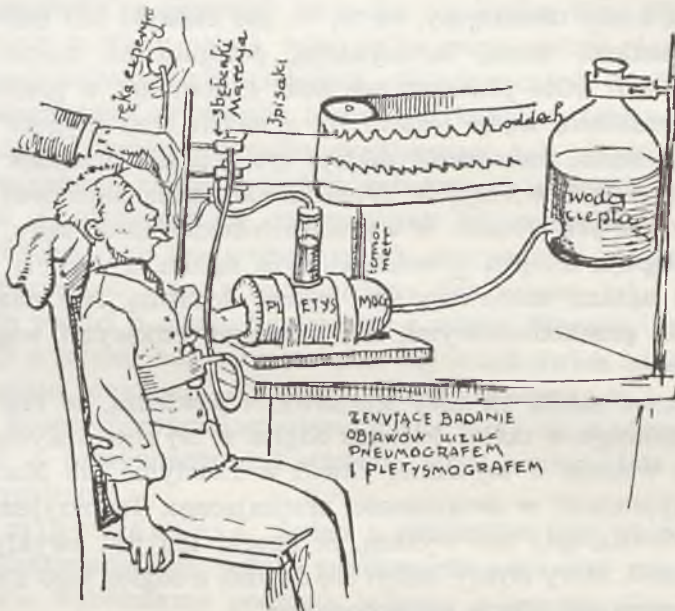 ręka
bębenki
Mareya
3 pisaki
oddech
woda
ciepła
termo-
metr
PL ETYS MOG
ŻENUJĄCE BADANIE
OBJAWÓW
PNEUMOGRAFEM
I PLETYSMOGRAFEM